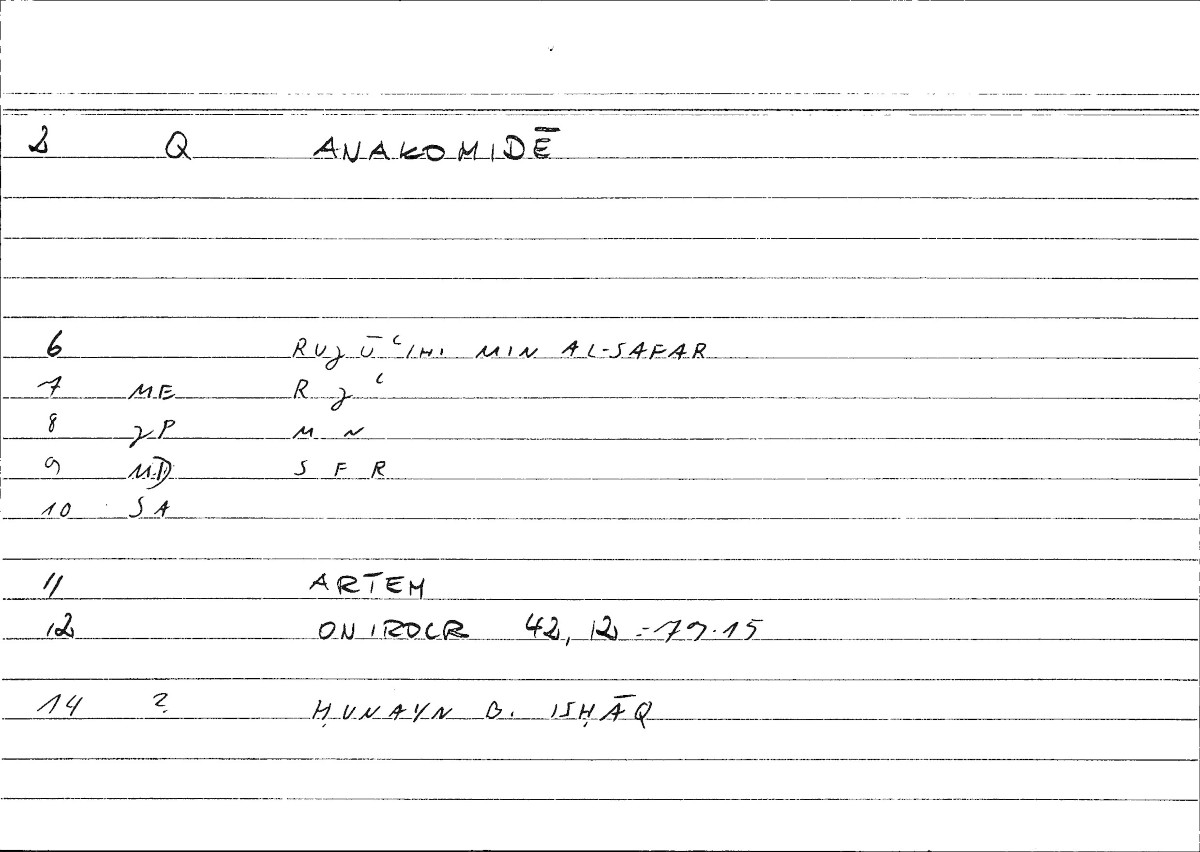 2 Q ANAKOMIDĒ
6 RUJŪʿIHI MIN AL-SAFAR
7 ME R J ʿ
8 JP M N
9 MD S F R
10 SA
11 ARTEM
12 ONIROCR 42, 12 = 79.15
14 ? ḤUNAYN B. ISḤĀQ